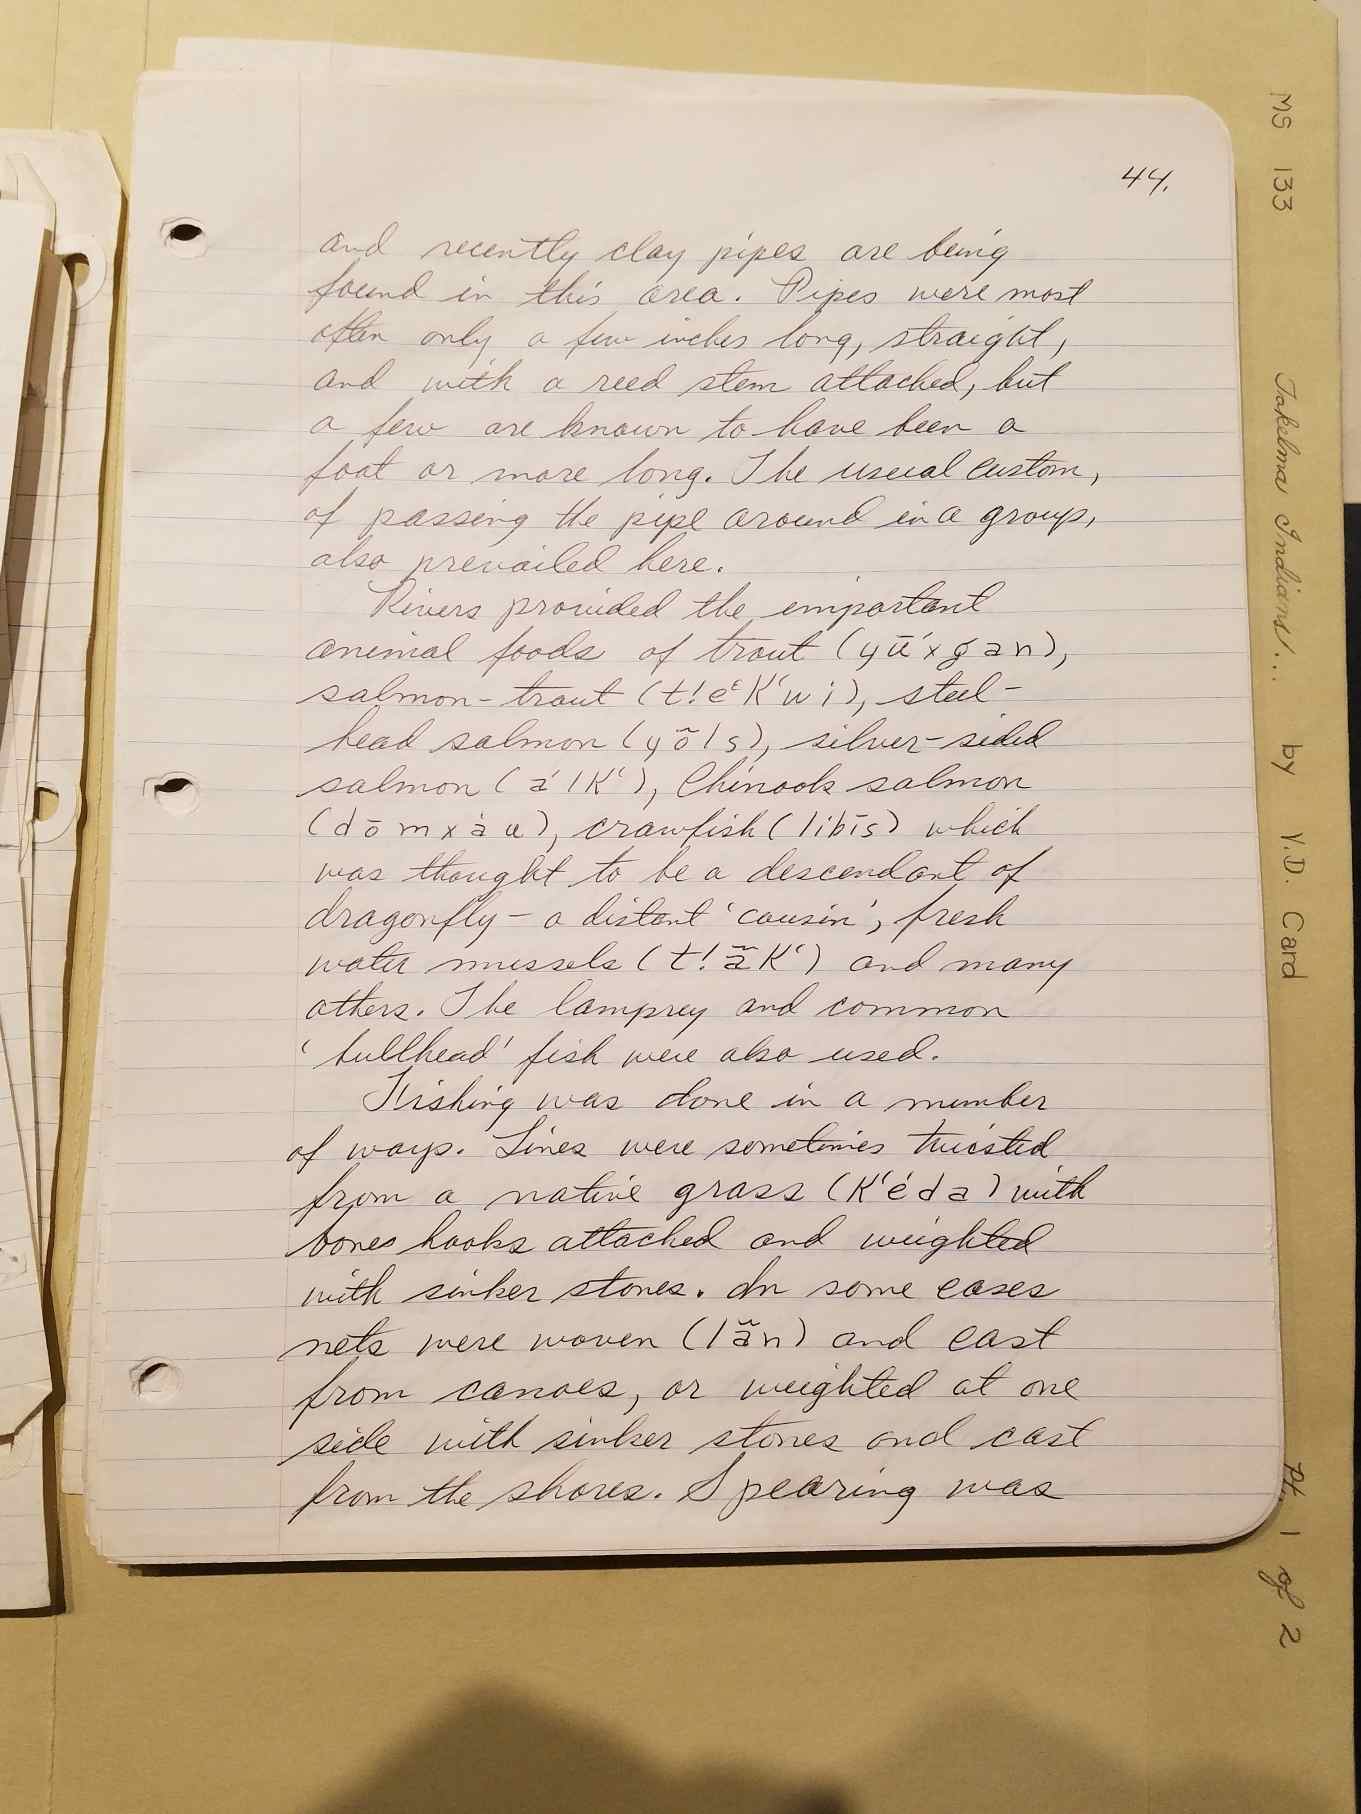 44.
and recently clay pipes are being
found in this area. Pipes were most
often only a few inches long, straight,
and with a reed stem attached, but
a few are known to have been a
foot or more long. The usual custom,
of passing the pipe around in a group,
also prevailed here.
Rivers provided the important
animal foods of trout (yū́xgan),
salmon-trout (t!eᵋk‘wi), steel-
head salmon (yȭls), silver-sided
salmon (álk‘), Chinook salmon
(dōmxau), crawfish (libīs) which
was thought to be a descendant of
dragonfly – a distant 'cousin', fresh
water mussels (t!ã̄k‘) and many
others. The lamprey and common
'bullhead' fish were also used.
Fishing was done in a number
of ways. Lines were sometimes twisted
from a native grass (k‘éda) with
bones hooks attached and weighted
with sinker stones. In some cases
nets were woven (lã̄n) and cast
from canoes, or weighted at one
side with sinker stones and cast
from the shores. Spearing was
MS 133 Takelma Indians/... by Y.D. Card pt. 1 of 2